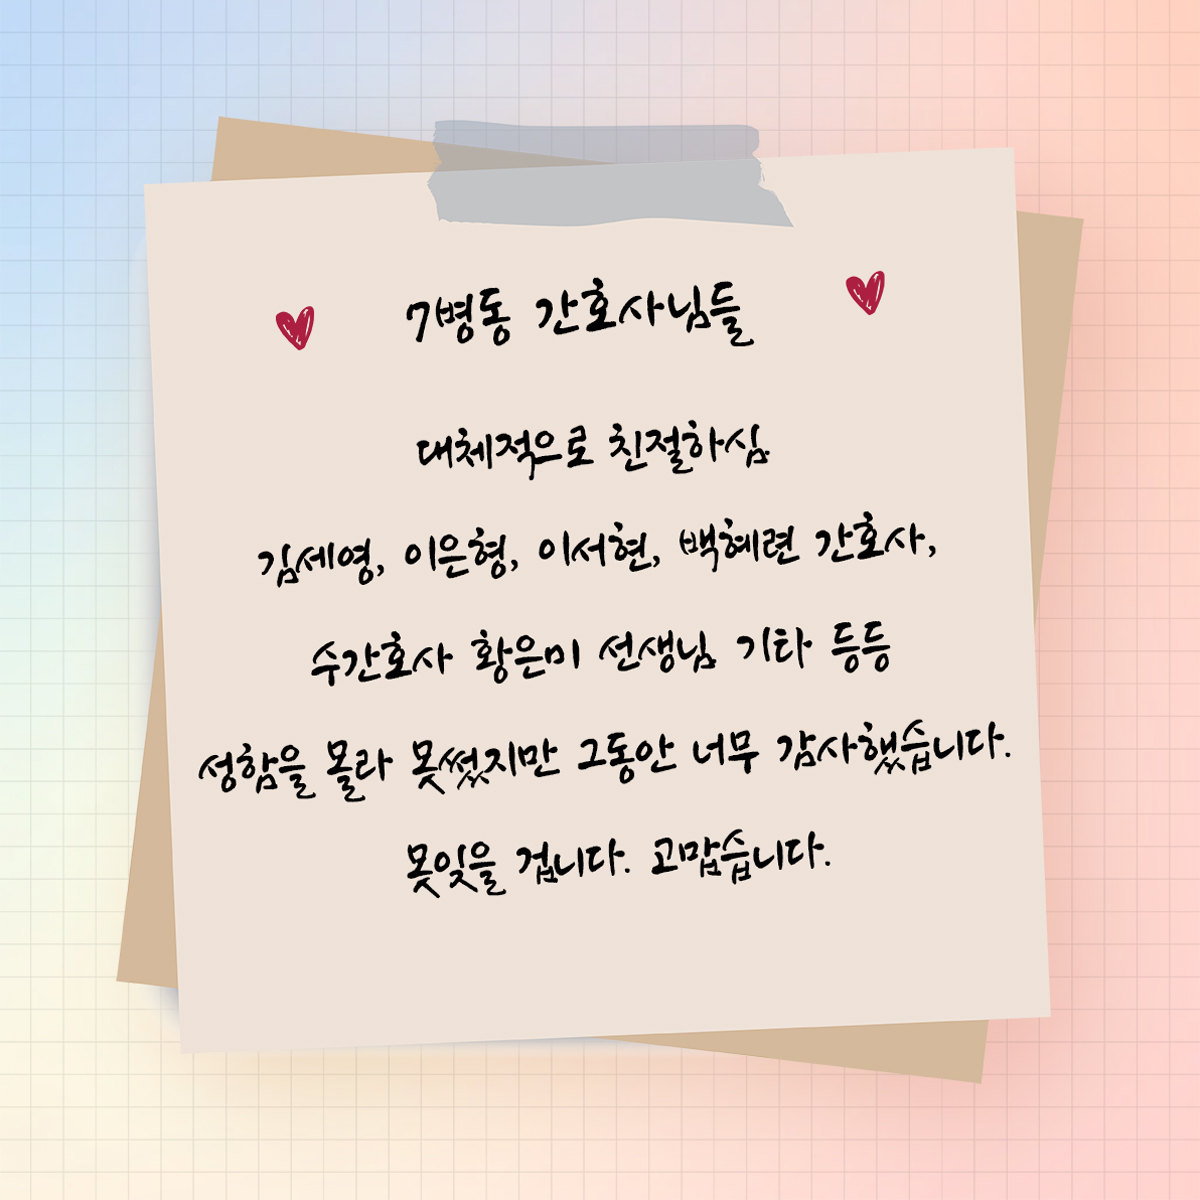 7병동 간호사님들
대체적으로 친절하심.
김세영, 이은형, 이서현, 백혜련 간호사,
수간호사 황은미 선생님. 기타 등등
성함을 몰라 못썼지만 그동안 너무 감사했습니다.
못잊을 겁니다. 고맙습니다.